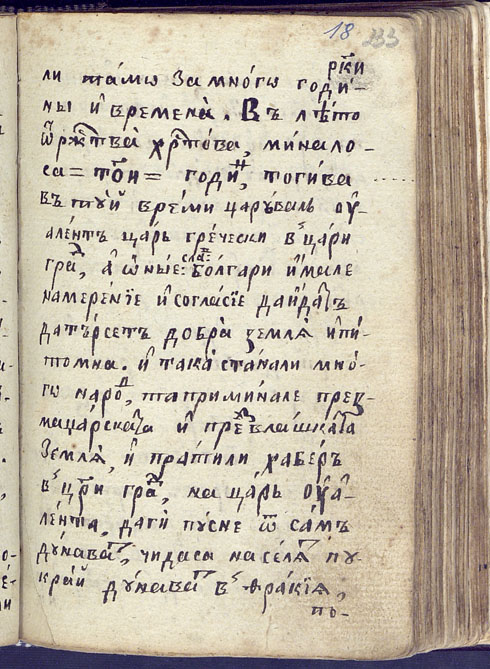 18 233
рки
ли тамѡ за многѡ годи-
ны и времена. Въ лѣто
ѿ ржтва хрт҇ова, минало-
са = тои = годи, тогива
въ туй времи царувалъ оу-
алентъ царь гречески в цари
гра, а ѡные: сла: болгари имале
намеренїе и согласїе даидатъ
датърсетъ добра земля ипи-
томна. и така станали мно-
го наро, та приминале през-
мацарската и през влашката
земля, и пратили хаберъ
в цри гра, на царь оуа-
лента, даги пусне ѿ самъ
дунава, чидаса населят пу
край дунава в ѳракїя,
по-